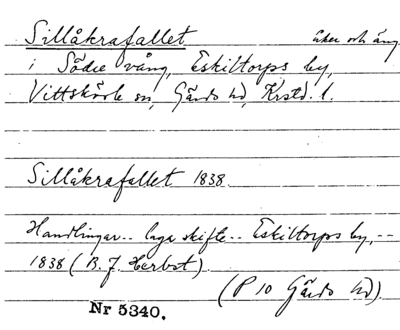 Sillåkrafallet åker och äng
i Södre vång, Eskiltorps by,
Vittskövle sn, Gärds hd, Krstd. l.
Sillåkrafallet 1838.
Handlingar -- laga skifte -- Eskiltorps by, --
1838 (B. J. Herbst).
(P 10 Gärds hd).
Nr 5340.